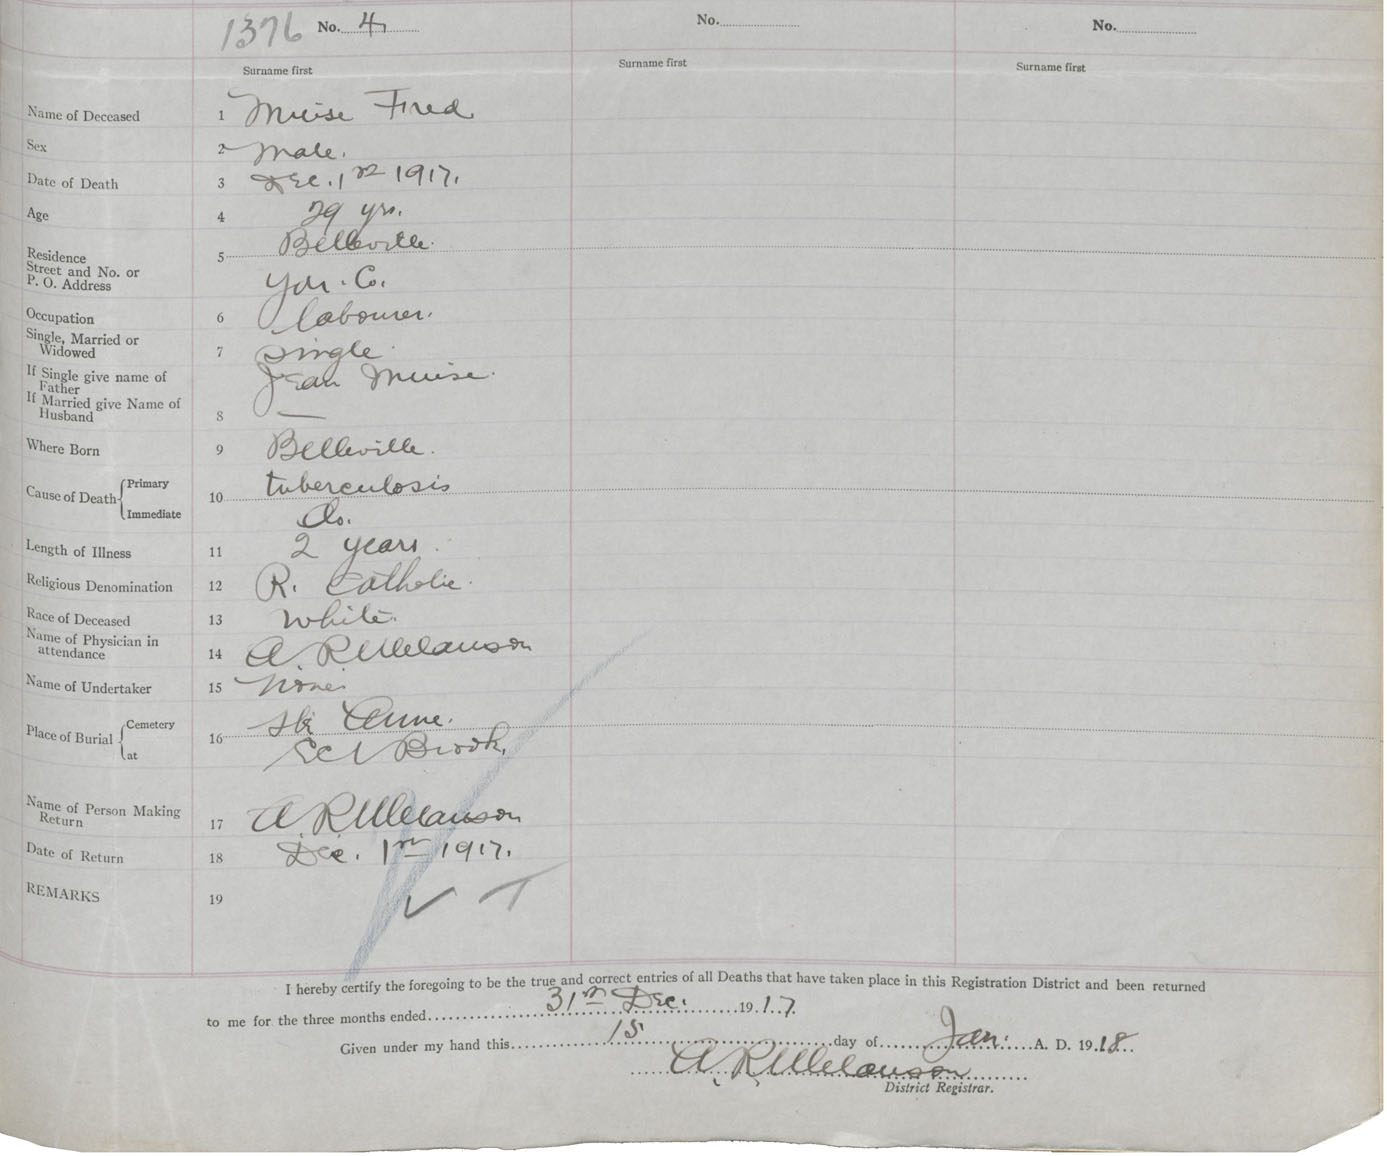 1376 No. 4 No. No.
Surname first Surname first Surname first
Name of Deceased 1 Muise Fred
Sex 2 Male.
Date of Death 3 Dec. 1st 1917.
Age 4 29 yrs.
Belleville.
Residence 5
Street and No. or
P. O. Address Yar. Co.
Occupation 6 labourer.
Single, Married or
Widowed 7 Single
If Single give name of
Father Jean Muise.
If Married give Name of
Husband 8 —
Where Born 9 Belleville.
Cause of Death Primary 10 tuberculosis
Immediate Do.
Length of Illness 11 2 years.
Religious Denomination 12 R. Catholic.
Race of Deceased 13 White.
Name of Physician in
attendance 14 A. R. Melanson
Name of Undertaker 15 none
Place of Burial Cemetery 16 Ste Anne.
at Eel Brook.
Name of Person Making
Return 17 A. R. Melanson
Date of Return 18 Dec. 1st 1917.
REMARKS 19
I hereby certify the foregoing to be the true and correct entries of all Deaths that have taken place in this Registration District and been returned
to me for the three months ended 31st Dec. 1917.
Given under my hand this 15 day of Jan. A. D. 1918.
A. R. Melanson
District Registrar.